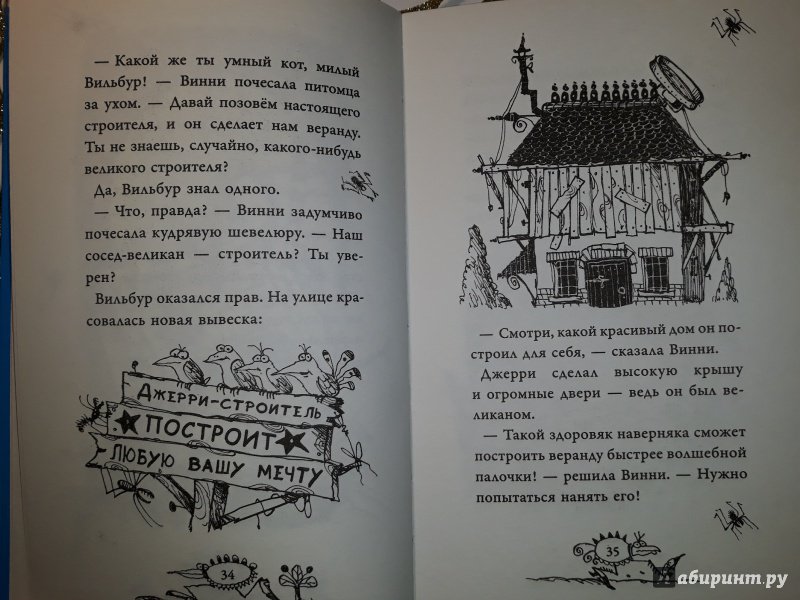 — Какой же ты умный кот, милый
Вильбур! — Винни почесала питомца
за ухом. — Давай позовём настоящего
строителя, и он сделает нам веранду.
Ты не знаешь, случайно, какого-нибудь
великого строителя?
Да, Вильбур знал одного.
— Что, правда? — Винни задумчиво
почесала кудрявую шевелюру. — Наш
сосед-великан — строитель? Ты уве-
рен?
Вильбур оказался прав. На улице кра-
совалась новая вывеска:
ДЖЕРРИ-СТРОИТЕЛЬ
ПОСТРОИТ
ЛЮБУЮ ВАШУ МЕЧТУ
34
— Смотри, какой красивый дом он по-
строил для себя, — сказала Винни.
Джерри сделал высокую крышу
и огромные двери — ведь он был ве-
ликаном.
— Такой здоровяк наверняка сможет
построить веранду быстрее волшебной
палочки! — решила Винни. — Нужно
попытаться нанять его!
35
Лабиринт.ру